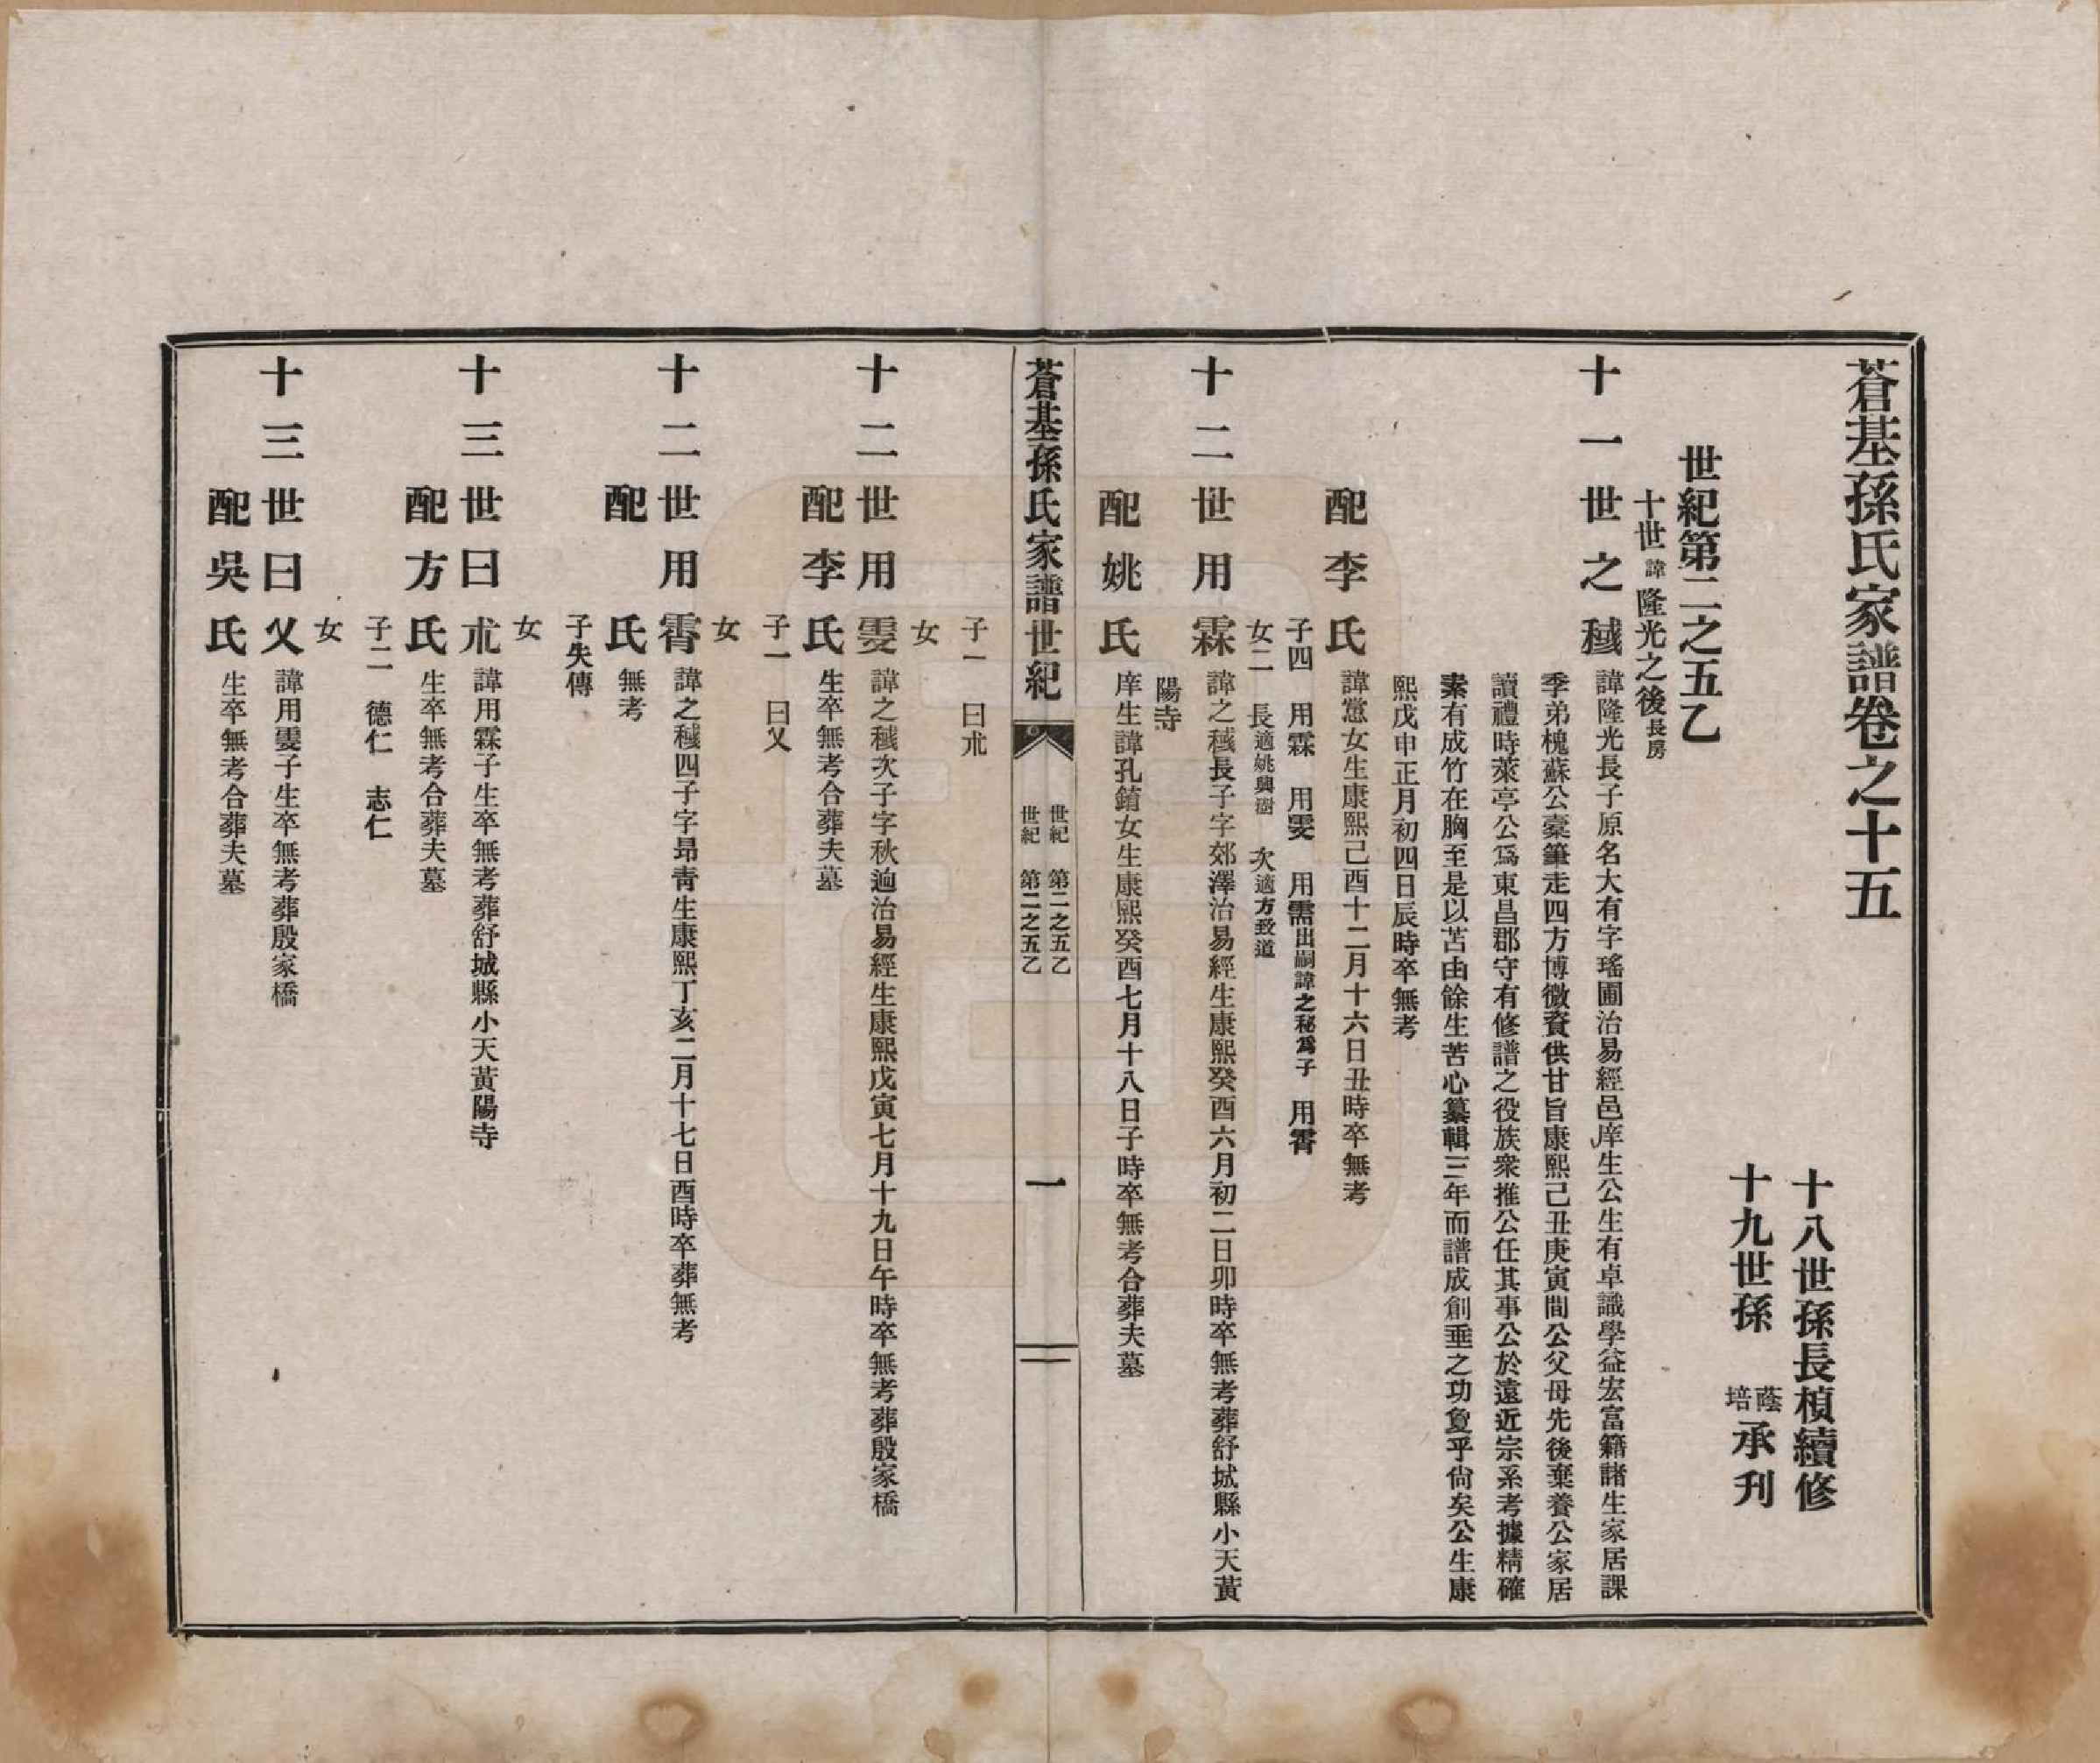 蒼基孫氏家譜卷之十五
十八世孫長楨續修
十九世孫 蔭培 承刊
世紀第二之五乙
十世諱隆光之後長房
十一世之稢 諱隆光長子原名大有字瑤圃治易經邑庠生公生有卓識學益宏富籍諸生家居課
季弟槐蘇公橐筆走四方博微資供甘旨康熙己丑庚寅間公父母先後棄養公家居
讀禮時萊亭公爲東昌郡守有修譜之役族衆推公任其事公於遠近宗系考據精確
素有成竹在胸至是以苫由餘生苦心纂輯三年而譜成創垂之功敻乎尚矣公生康
熙戊申正月初四日辰時卒無考
配李氏 諱懲女生康熙己酉十二月十六日丑時卒無考
子四 用霖 用雯 用需出嗣諱之秘爲子 用霄
女二 長適姚興澍 次適方致道
十二世用霖 諱之稢長子字郊澤治易經生康熙癸酉六月初二日卯時卒無考葬舒城縣小天黃
陽寺
配姚氏 庠生諱孔錥女生康熙癸酉七月十八日子時卒無考合葬夫墓
蒼基孫氏家譜世紀
世紀 第二之五乙
世紀 第二之五乙
一
子一 曰朮
女
十二世用雯 諱之稢次子字秋逈治易經生康熙戊寅七月十九日午時卒無考葬殷家橋
配李氏 生卒無考合葬夫墓
子一 曰乂
女
十二世用霄 諱之稢四子字昻青生康熙丁亥二月十七日酉時卒葬無考
配 氏 無考
子失傳
女
十三世曰朮 諱用霖子生卒無考葬舒城縣小天黃陽寺
配方氏 生卒無考合葬夫墓
子二 德仁 志仁
女
十三世曰乂 諱用雯子生卒無考葬殷家橋
配吳氏 生卒無考合葬夫墓